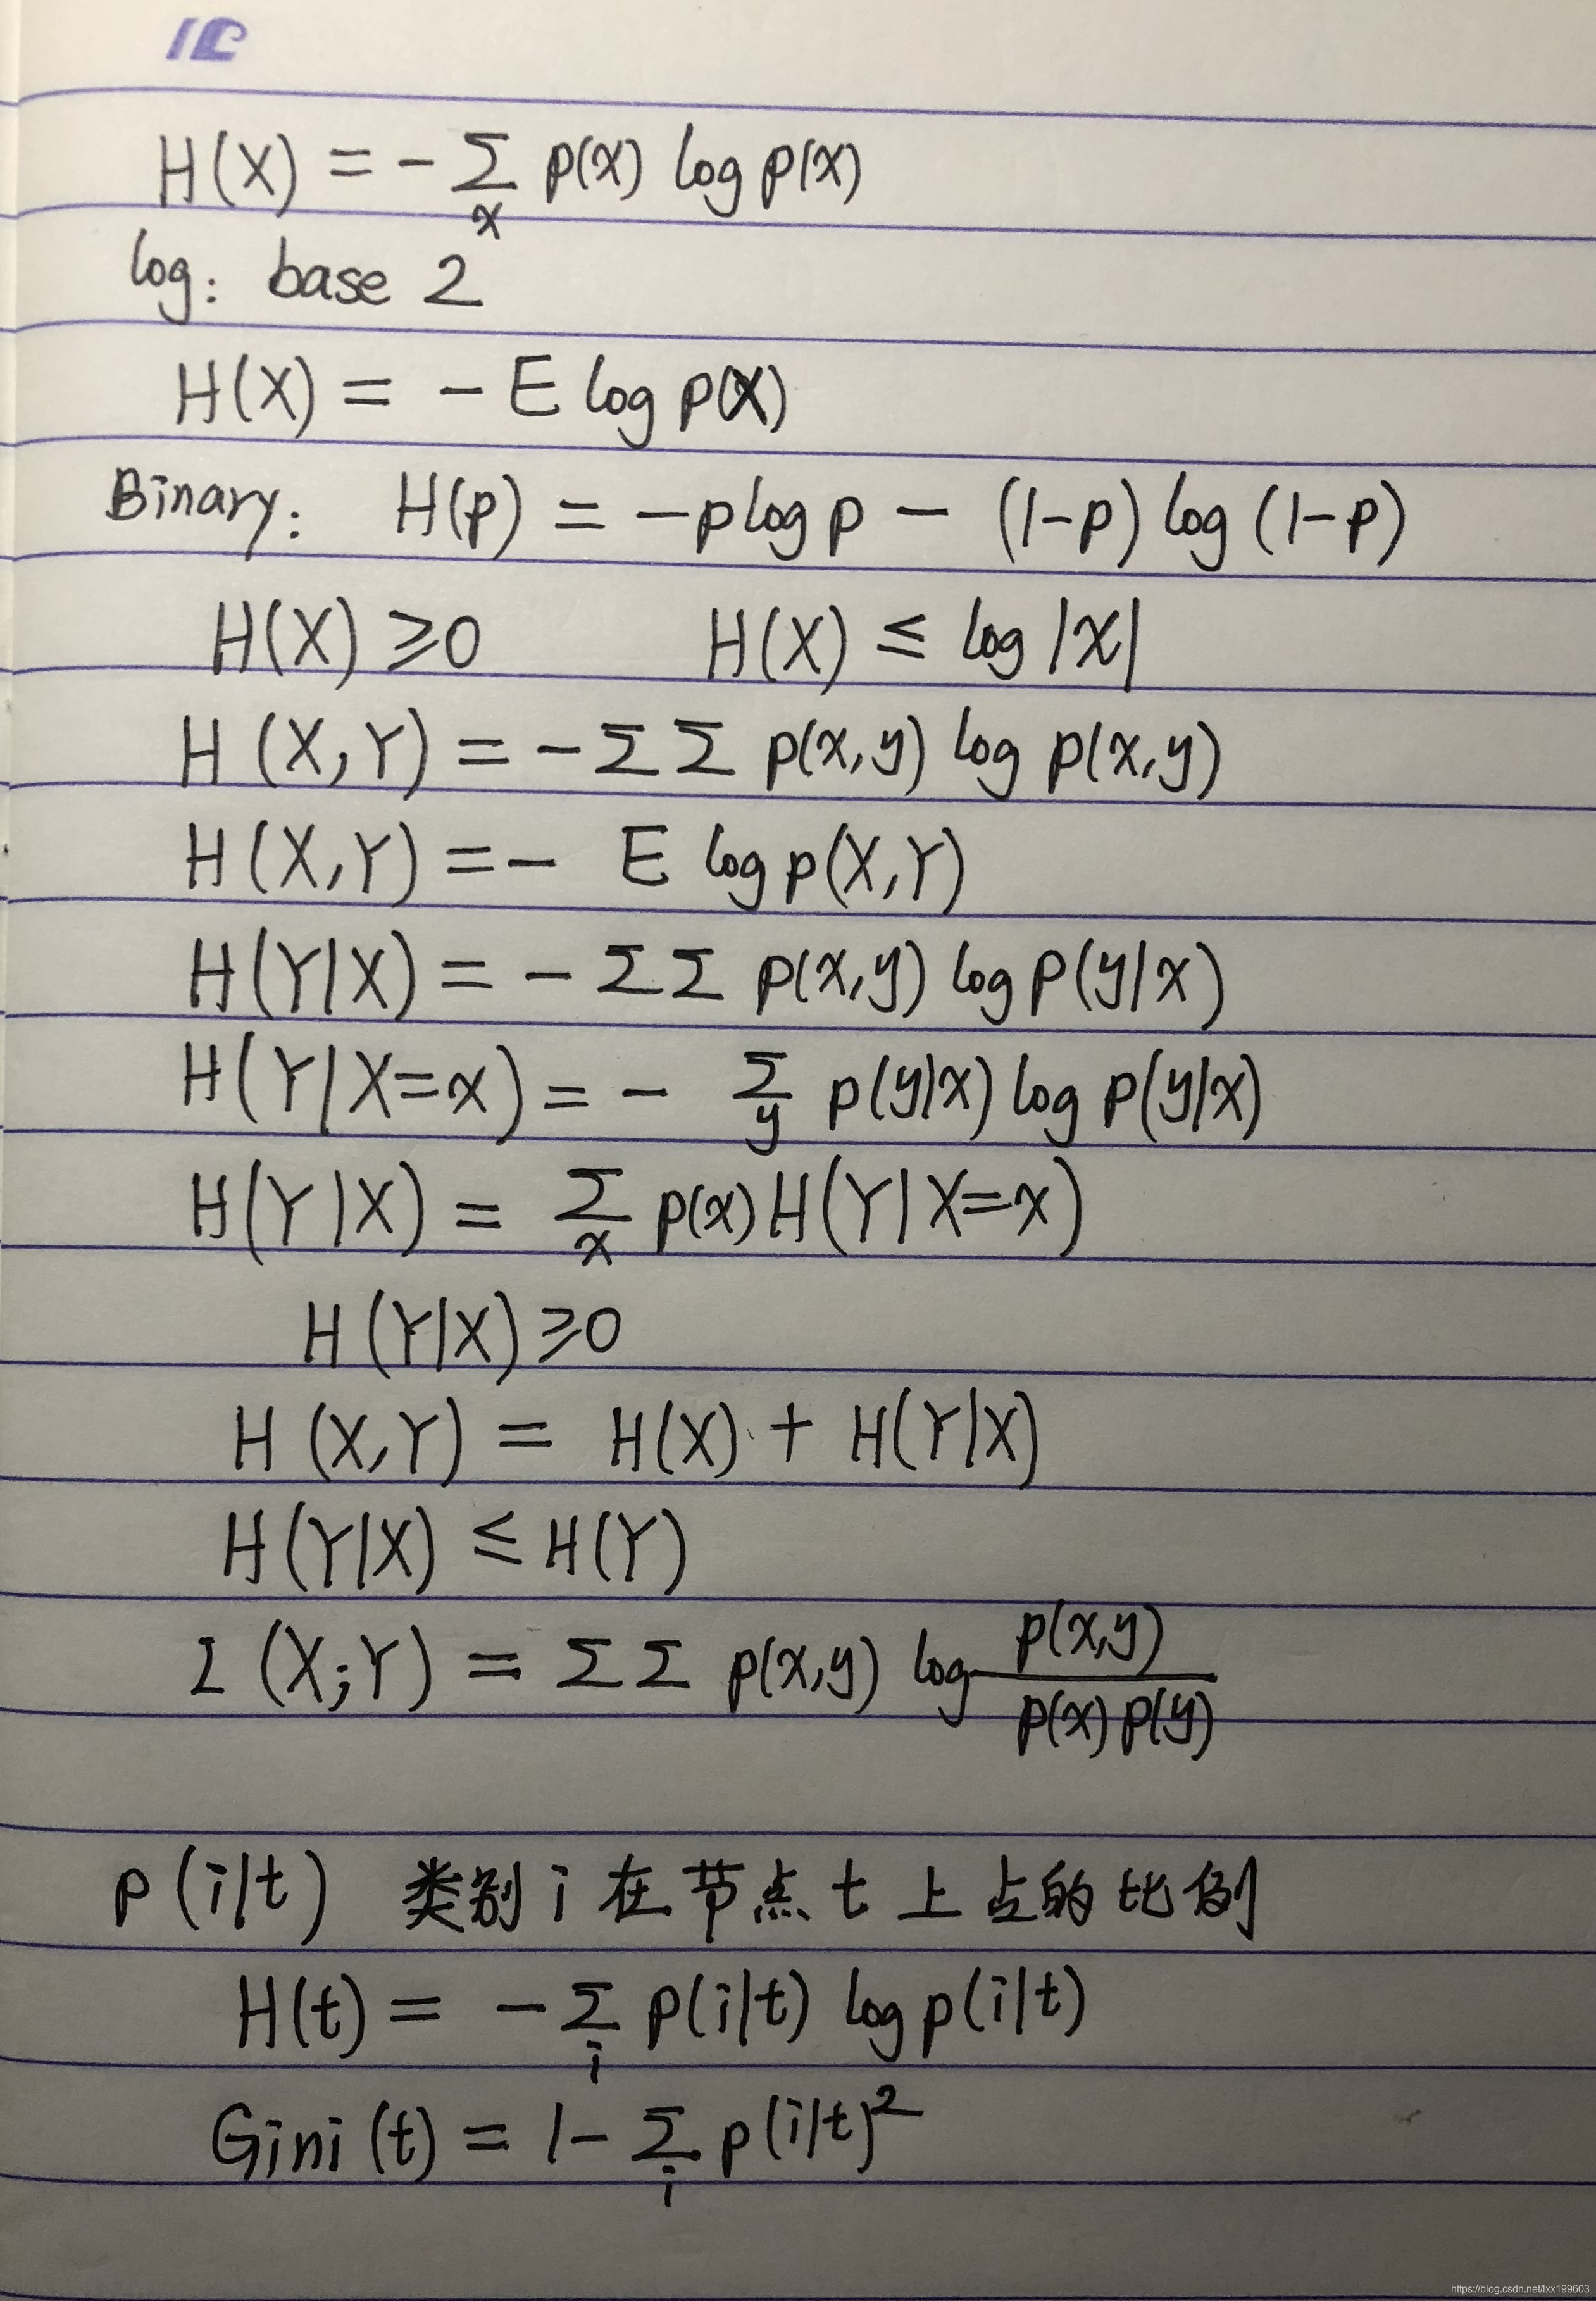 H(X) = - Σ_x p(x) log p(x)
log: base 2
H(X) = - E log p(X)
Binary: H(p) = -p log p - (1-p) log (1-p)
H(X) ≥ 0 H(X) ≤ log |X|
H(X,Y) = - Σ Σ p(x,y) log p(x,y)
H(X,Y) = - E log p(X,Y)
H(Y|X) = - Σ Σ p(x,y) log p(y|x)
H(Y|X=x) = - Σ_y p(y|x) log p(y|x)
H(Y|X) = Σ_x p(x) H(Y|X=x)
H(Y|X) ≥ 0
H(X,Y) = H(X) + H(Y|X)
H(Y|X) ≤ H(Y)
I(X;Y) = Σ Σ p(x,y) log p(x,y) / p(x) p(y)
p(i|t) 类别 i 在节点 t 上占的比例
H(t) = - Σ_i p(i|t) log p(i|t)
Gini(t) = 1 - Σ_i p(i|t)²
https://blog.csdn.net/lxx199603